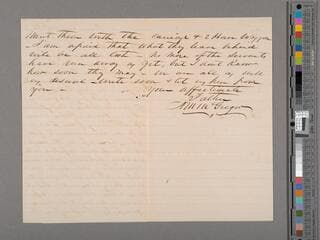 them with the carriage & 2 Horse Waggon
I am afraid that what they leave behind
will be all lost - no more of the servants
have run away as yet, but I don't know
how soon they may - we are all as well
as usual Let us hear from
you - Your affectionate
Father